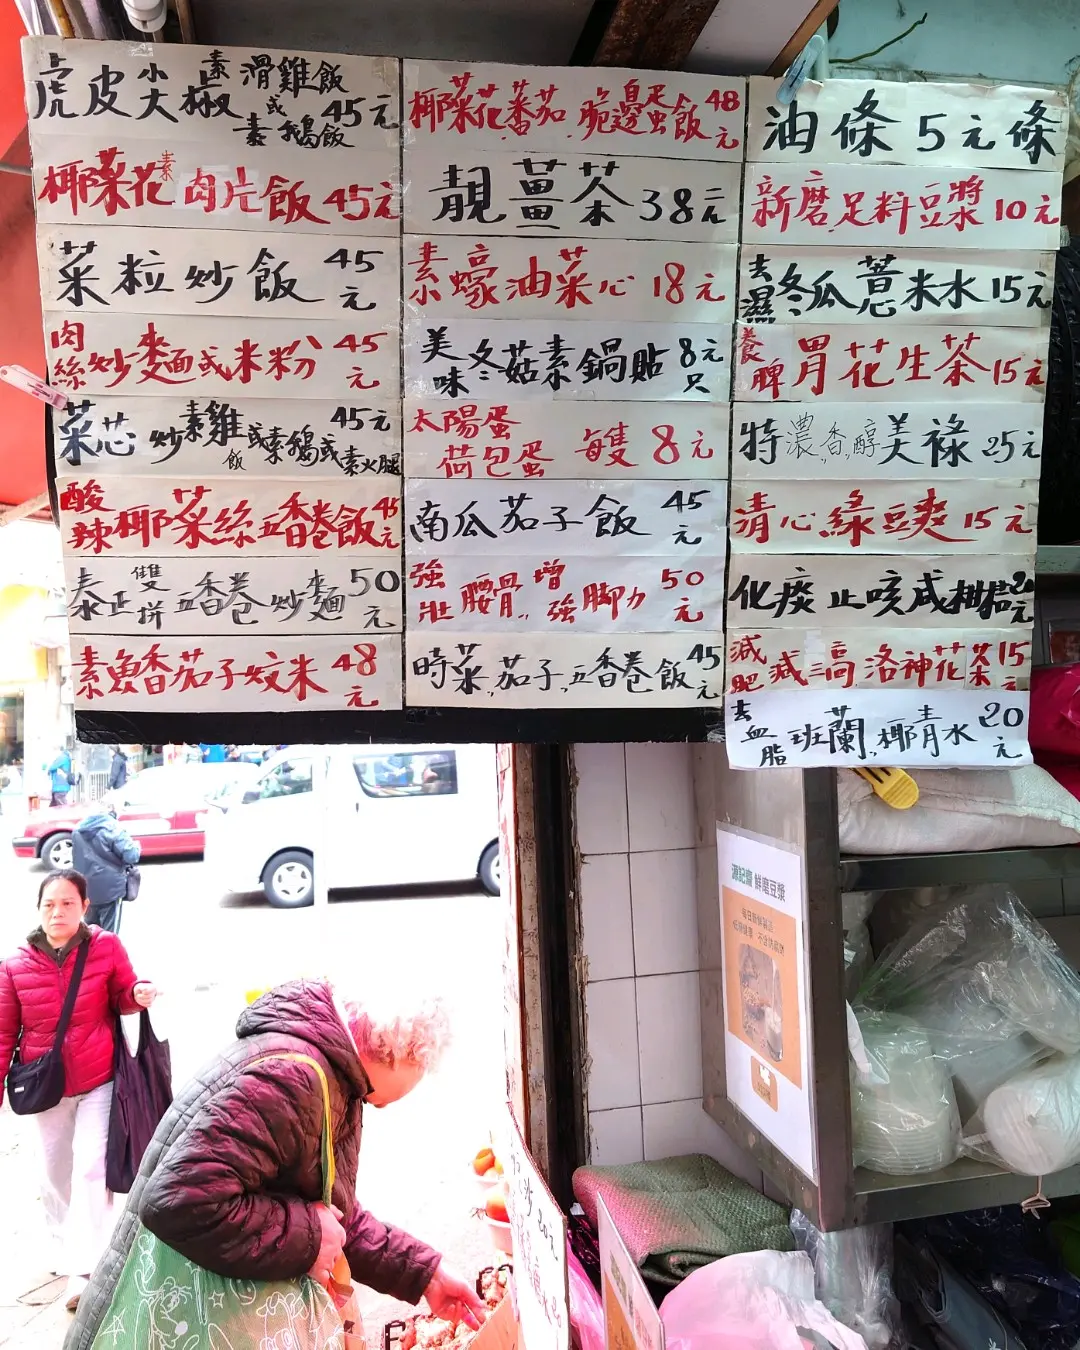 虎皮尖椒素滑雞飯或素鵝飯45元
椰菜花素肉片飯45元
菜粒炒飯45元
肉絲炒麵或米粉45元
菜芯炒素雞飯或素鵝或素火腿45元
酸辣椰菜絲五香卷飯45元
泰正雙拼五香卷炒麵50元
素魚香茄子炆米48元
椰菜花蕃茄脆邊蛋飯48元
靚薑茶38元
素蠔油菜心18元
美味冬菇素鍋貼8元只
太陽蛋荷包蛋每隻8元
南瓜茄子飯45元
強壯腰骨,增強脚力50元
時菜,茄子,五香卷飯45元
油條5元條
新磨足料豆漿10元
去濕冬瓜薏米水15元
養脾胃花生茶15元
特濃香醇美祿25元
清心綠豆爽15元
化痰止咳咸柑桔20元
減肥減三高洛神花茶15元
去血脂班蘭椰青水20元
源記齋 鮮磨豆漿